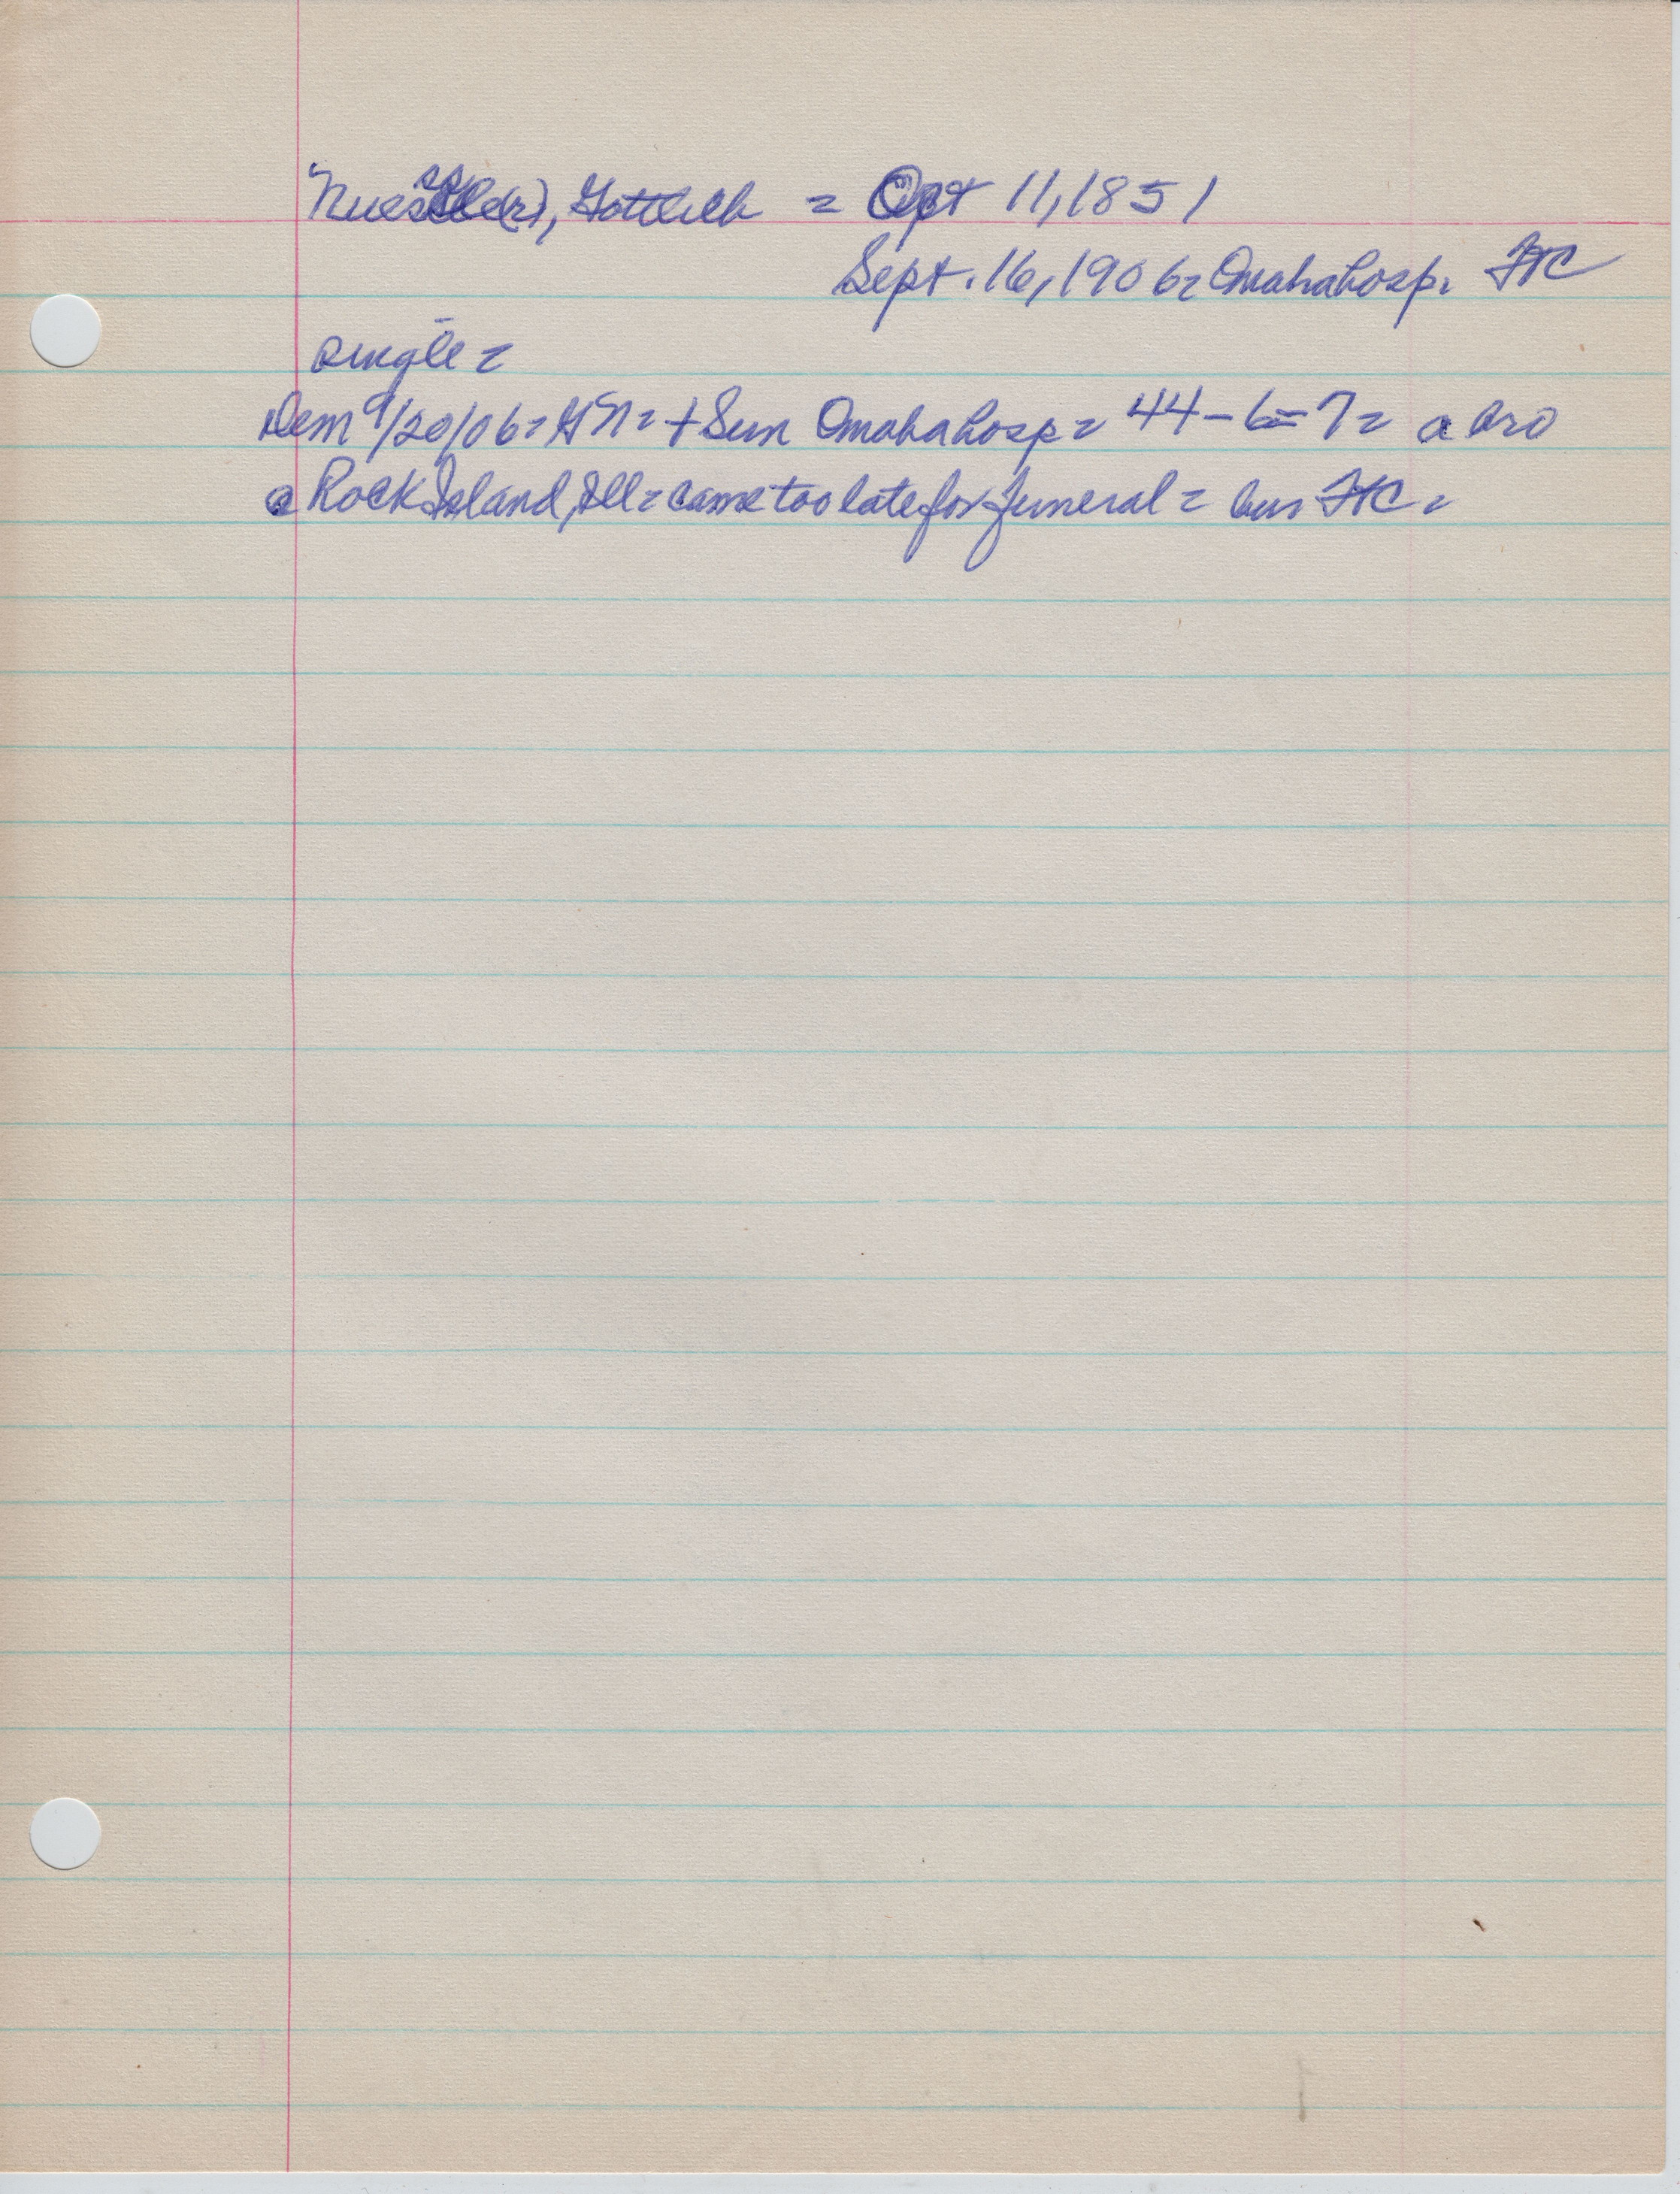 Gottlieb = Oct 11, 1851
Sept. 16, 1906 = Omaha hosp. FC
single =
Dem 9/20/06 = GN = + Sun Omaha hosp = 44-6=7 = a bro
@ Rock Island, Ill = came too late for funeral = bur FC =